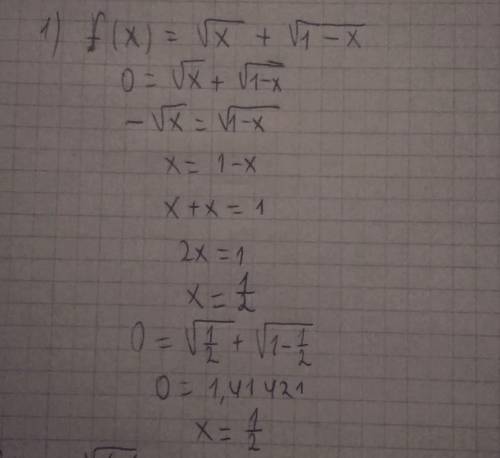 1) f(x) = √x + √1-x
0 = √x + √1-x
-√x = √1-x
x = 1-x
x + x = 1
2x = 1
x = 1/2
0 = √1/2 + √1-1/2
0 = 1,41421
x = 1/2